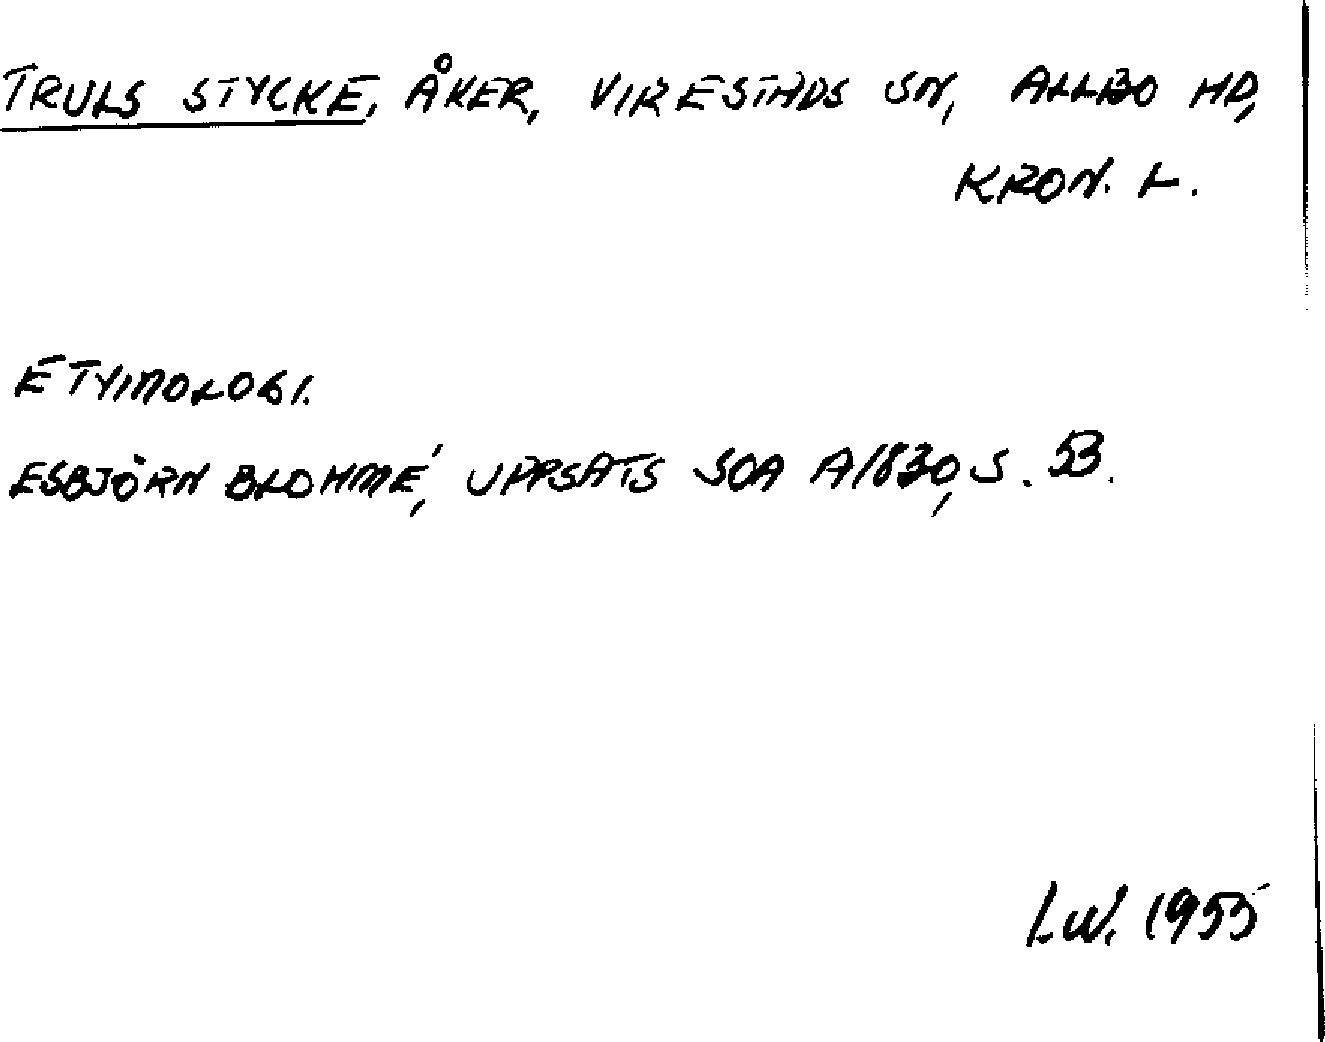 TRULS STYCKE, ÅKER, VIRESTADS SN, ALLBO HD,
KRON. L.
ETYMOLOGI.
ESBJÖRN BLOHMÉ, UPPSATS SOA A1830, S. 53.
I.W. 1955